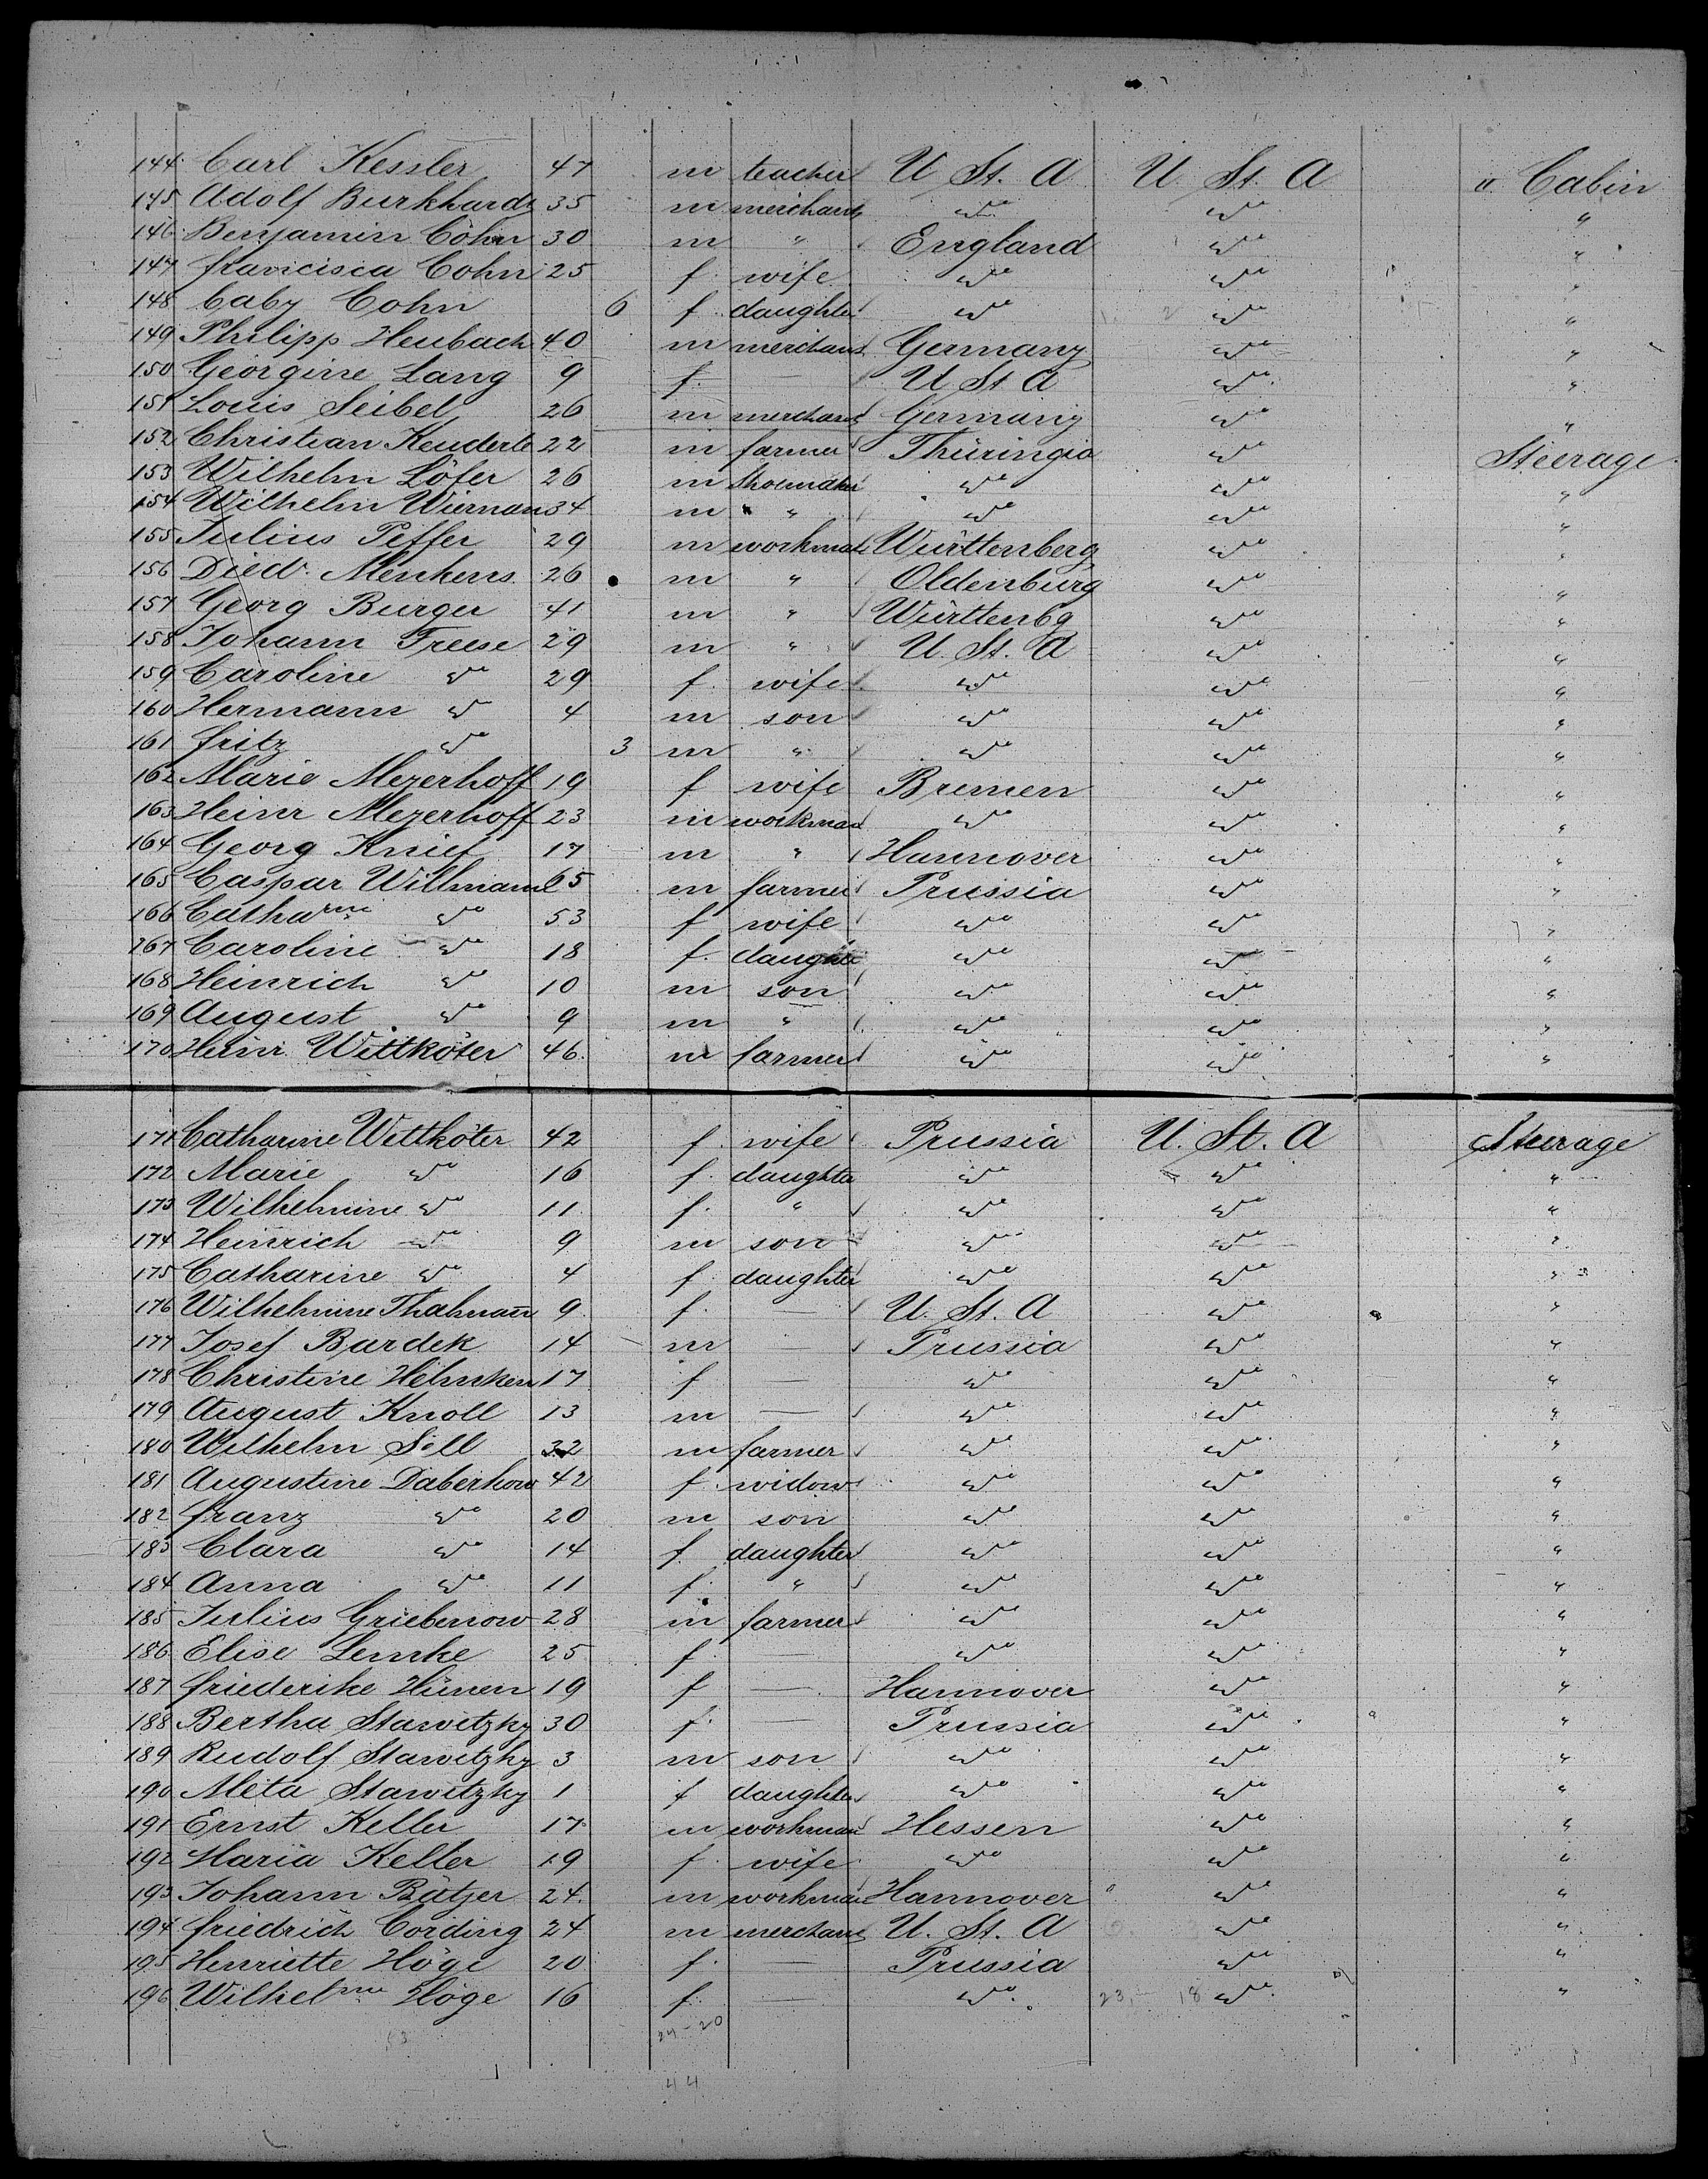 144 Carl Kessler 47 m teacher U. St. A U. St. A " Cabin
145 Adolf Burkhardt 35 m merchant do do "
146 Benjamin Cohn 30 m " England do "
147 francisca Cohn 25 f. wife do do "
148 baby Cohn 6 f. daughter do do "
149 Philipp Heubach 40 m merchant Germany do "
150 Georgine Lang 9 f. — U St A do "
151 Louis Seibel 26 m merchant Germany do "
152 Christian Keuderle 22 m farmer Thüringia do Steerage
153 Wilhelm Löfer 26 m Shoemaker do do "
154 Wilhelm Wierman 34 m " do do "
155 Julius Peffer 29 m workman Württenberg do "
156 Died. Menkens 26 m " Oldenburg do "
157 Georg Burger 41 m " Württenbg do "
158 Johann Freese 29 m " U. St. A do "
159 Caroline do 29 f. wife do do "
160 Hermann do 4 m son do do "
161 fritz do 3 m " do do "
162 Marie Meyerhoff 19 f wife Bremen do "
163 Heinr Meyerhoff 23 m workman do do "
164 Georg Knief 17 m " Hannover do "
165 Caspar Willmann 65 m farmer Prussia do "
166 Catharine do 53 f wife do do "
167 Caroline do 18 f. daughter do do "
168 Heinrich do 10 m son do do "
169 August do 9 m " do do "
170 Heinr. Wittköter 46 m farmer do do "
171 Catharine Wittköter 42 f. wife Prussia U. St. A Steerage
172 Marie do 16 f. daughter do do "
173 Wilhelmine do 11 f. " do do "
174 Heinrich do 9 m son do do "
175 Catharine do 4 f. daughter do do "
176 Wilhelmine Thalmann 9 f. — U. St. A do "
177 Josef Bardek 14 m — Prussia do "
178 Christine Helmken 17 f — do do "
179 August Knoll 13 m — do do "
180 Wilhelm Sell 32 m farmer do do "
181 Augustine Daberkow 42 f. widow do do "
182 franz do 20 m son do do "
183 Clara do 14 f. daughter do do "
184 Anna do 11 f. " do do "
185 Julius Griebenow 28 m farmer do do "
186 Elise Lemke 25 f. — do do "
187 friederike Hünen 19 f — Hannover do "
188 Bertha Stawitzky 30 f. — Prussia do "
189 Rudolf Stawitzky 3 m son do do "
190 Meta Stawitzky 1 f daughter do do "
191 Ernst Keller 17 m workman Hessen do "
192 Maria Keller 19 f. wife do do "
193 Johann Bätjer 24 m workman Hannover do "
194 friedrich Cording 24 m merchant U. St. A do "
195 Henriette Höge 20 f. — Prussia do "
196 Wilhelmine Höge 16 f. — do 23 18 do "
24-20
44